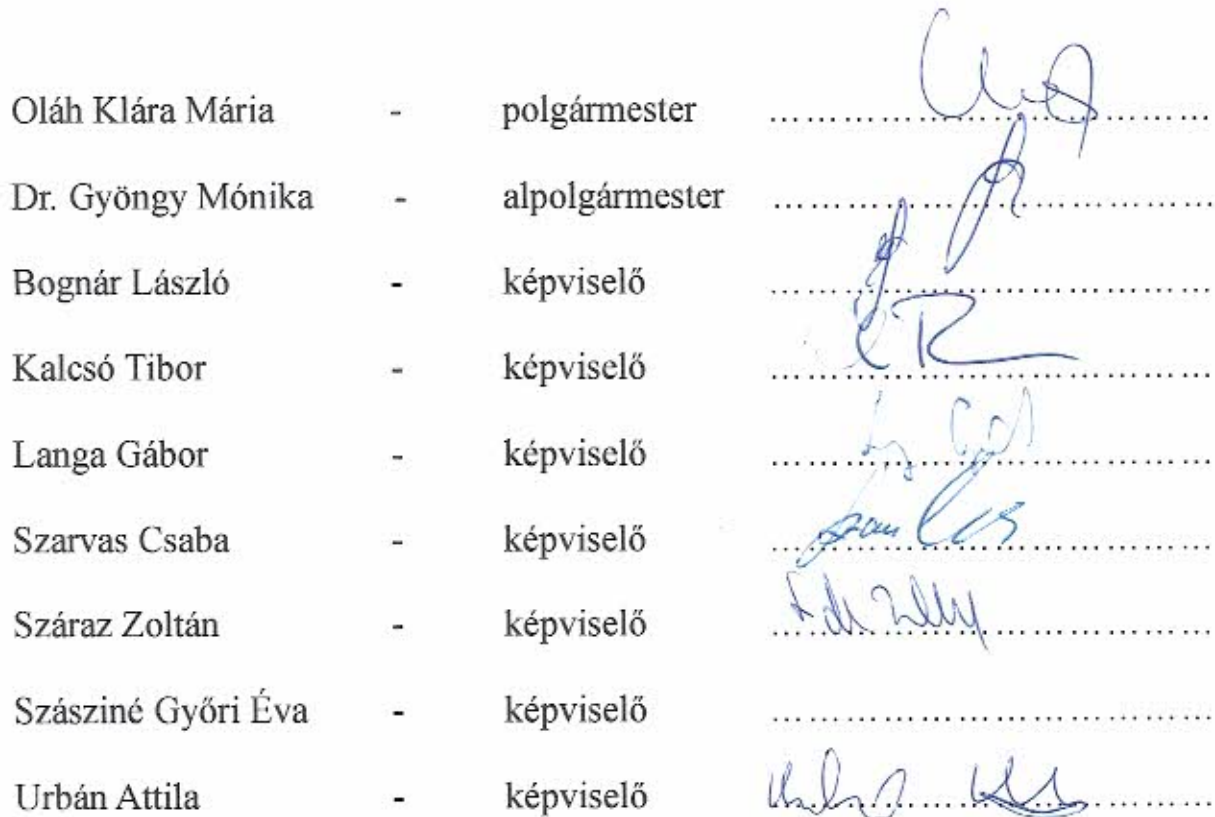 Oláh Klára Mária - polgármester ................................
Dr. Gyöngy Mónika - alpolgármester ................................
Bognár László - képviselő ................................
Kalcsó Tibor - képviselő ................................
Langa Gábor - képviselő ................................
Szarvas Csaba - képviselő ................................
Száraz Zoltán - képviselő ................................
Szásziné Győri Éva - képviselő ................................
Urbán Attila - képviselő ................................